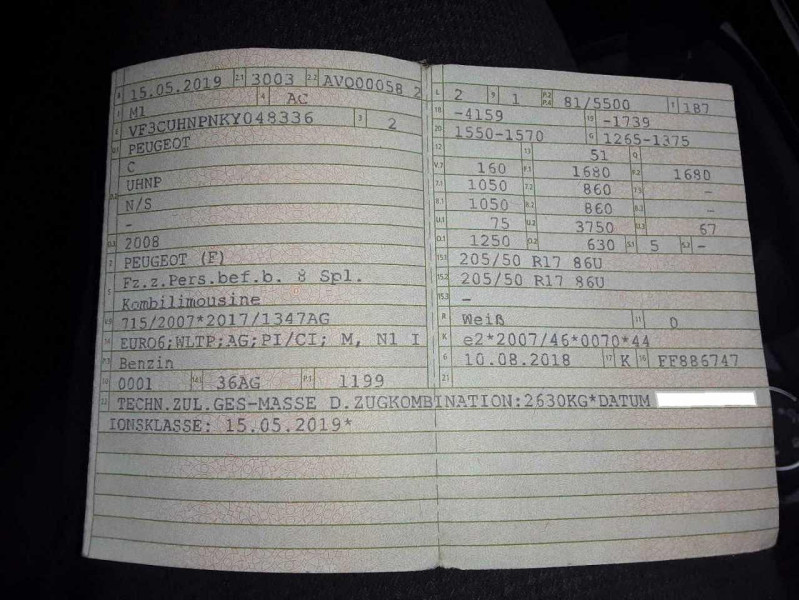 B 15.05.2019 2.1 3003 2.2 AVO00058 2
J M1 4 AC
E VF3CUHNPNKY048336 3 2
D.1 PEUGEOT
C
D.2 UHNP
N/S
-
D.3 2008
2 PEUGEOT (F)
5 Fz.z.Pers.bef.b. 8 Spl.
Kombilimousine
V.9 715/2007*2017/1347AG
14 EURO6;WLTP;AG;PI/CI; M, N1 I
P.3 Benzin
10 0001 14.1 36AG P.1 1199
L 2 9 1 P.2 P.4 81/5500 T 187
18 -4159 19 -1739
20 1550-1570 G 1265-1375
12 13 51 Q
V.7 160 F.1 1680 F.2 1680
7.1 1050 7.2 860 7.3 -
8.1 1050 8.2 860 8.3 -
U.1 75 U.2 3750 U.3 67
O.1 1250 O.2 630 S.1 5 S.2 -
15.1 205/50 R17 86U
15.2 205/50 R17 86U
15.3 -
R Weiß 11 D
K e2*2007/46*0070*44
6 10.08.2018 17 K 16 FF886747
21
22 TECHN.ZUL.GES-MASSE D.ZUGKOMBINATION:2630KG*DATUM
IONSKLASSE: 15.05.2019*